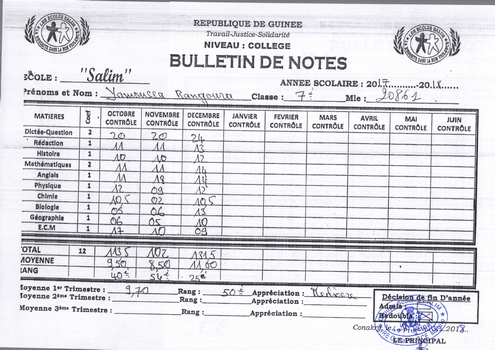 REPUBLIQUE DE GUINEE
Travail-Justice-Solidarité
NIVEAU : COLLEGE
BULLETIN DE NOTES
ECOLE : "Salim" ANNEE SCOLAIRE : 2017.........2018
Prénoms et Nom : Yamoussa Bangoura Classe : 7è Mle : 20861
MATIERES Coef OCTOBRE CONTRÔLE NOVEMBRE CONTRÔLE DECEMBRE CONTRÔLE JANVIER CONTRÔLE FEVRIER CONTRÔLE MARS CONTRÔLE AVRIL CONTRÔLE MAI CONTRÔLE JUIN CONTRÔLE
Dictée-Question 2 20 20 24
Rédaction 1 11 11 13
Histoire 1 10 10 12
Mathématiques 2 11 11 14
Anglais 1 11 18 14
Physique 1 12 09 12
Chimie 1 105 02 105
Biologie 1 05 06 13
Géographie 1 06 05 10
E.C.M 1 17 10 09
TOTAL 12 1135 102 1315
MOYENNE 9,50 8,50
RANG 40è 54è 25è
Moyenne 1er Trimestre : 9,70 Rang : 50è Appréciation :
Moyenne 2ème Trimestre : Rang : Appréciation :
Moyenne 3ème Trimestre : Rang : Appréciation :
Décision de fin D'année
Admis
Redouble
Conakry, le 2018
LE PRINCIPAL